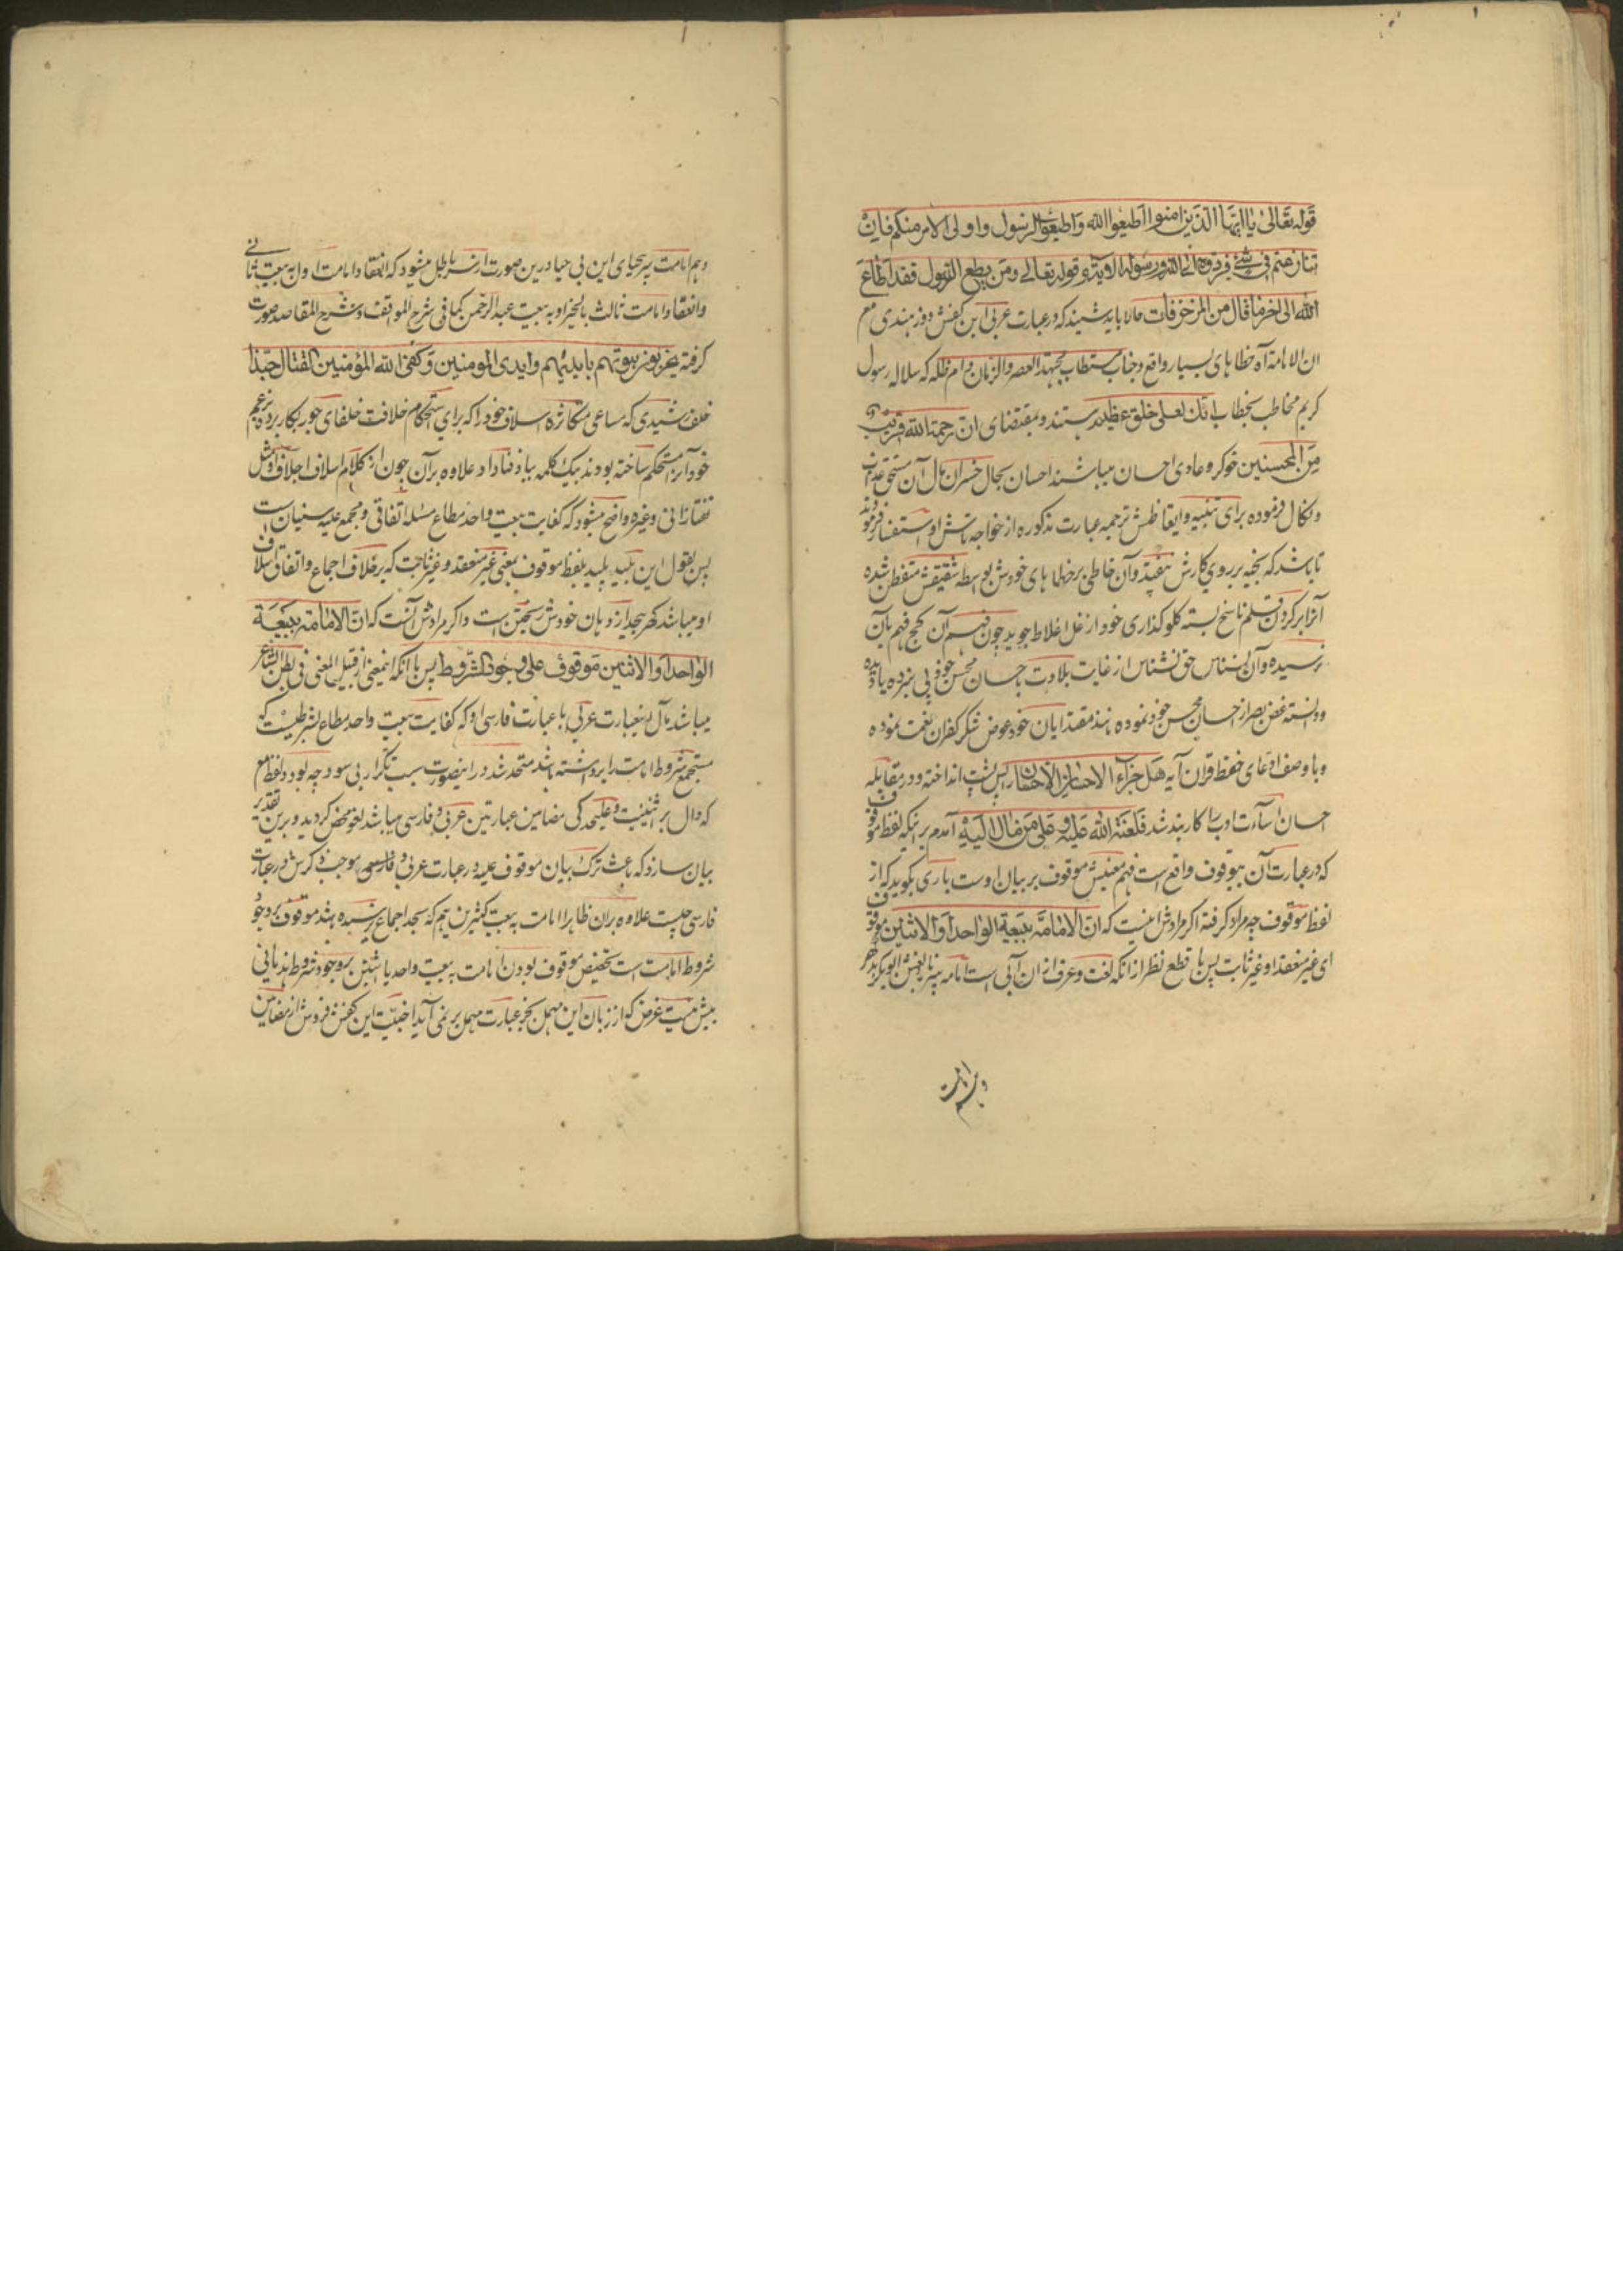 قوله تعالی یا ایها الذین امنوا اطیعوا الله و اطیعوا الرسول و اولی الامر منکم فان
تنازعتم فی شیٔ فردوه الی الله و رسوله الآیة و قوله تعالی و من یطع الرسول فقد اطاع
الله الی اخر ما قال من المزخرفات حالا باید شنید که در عبارت عربی این کفش دوز هندی مع
ان الامامة آه خطاهای بسیار واقع و جناب مستطاب مجتهد العصر والزمان دام ظله که سلاله رسول
کریم مخاطب بخطاب انک لعلی خلق عظیم هستند و بمقتضای ان رحمة الله قریب
من المحسنین خوکر و عادی احسان میباشند احسان بحال خسران مآل آن مستحق عذاب
و نکال فرموده برای تنبیه و ایقاظش ترجمه عبارت مذکوره از خواجه تاش او استفسار فرمودند
تا باشد که بخیه بر روی کارش نیفتد و آن خاطی بر خطاهای خودش بواسطه شقیقش متفطن شده
آنرا بر کردن قلم ناسخ بسته کلو کذاری خود از غل اغلاط جوید چون فهم آن کج فهم بآن
نرسیده و آن نسناس حق نشناس از غایت بلادت باحسان محسن خود پی نبرده یا دیده
و دانسته غض بصر از احسان محسن خود نموده مانند مقتدایان خود عوض شکر کفران نعمت نموده
و با وصف ادعای حفظ قران آیه هل جزاء الاحسان الا الاحسان را پس پشت انداخته و در مقابله
احسان اسآءت ادب را کاربند شد فلعنة الله علیه و علی من مال الیه آمدم بر اینکه لفظ موقوف
که در عبارت آن بیوقوف واقع است فهم معنیش موقوف بر بیان اوست باری بکوید که از
لفظ موقوف چه مراد کرفته اکر مرادش اینست که ان الامامة ببیعة الواحد او الاثنین موقوف
ای غیر منعقد او غیر ثابت پس با قطع نظر از انکه لغت و عرف از ان آبی است امامه پیر نابالغش ابوبکر بدر
وهم امامت
وهم امامت پیر بیحیای این بی حیا درین صورت از سر باطل میشود که انعقاد امامت او به بیعت ثانی
و انعقاد امامت ثالث بالخیر او به بیعت عبد الرحمن کما فی شرح المواقف و شرح المقاصد صورت
کرفته یخربون بیوتهم بایدیهم و ایدی المومنین و کفی الله المؤمنین القتال حبذا
خلف رشیدی که مساعی متکاثره اسلاف خود را که برای استحکام خلافت خلفای جور بکار برده بزعم
خود آنرا مستحکم ساخته بودند بیک کلمه بباد فنا داد علاوه بر آن چون از کلام اسلاف اجلاف او مثل
تفتازانی و غیره واضح میشود که کفایت بیعت واحد مطاع مسئله اتفاقی و مجمع علیه سنیان است
پس بقول این بلید لفظ موقوف بمعنی غیر منعقد و غیر ثابت که برخلاف اجماع و اتفاق اسلاف
او میباشد از دهان خودش است و اکر مرادش آنست که ان الامامة ببیعة
الواحد او الاثنین موقوف علی وجود الشروط پس با آنکه اینمعنی از قبیل المعنی فی بطن الشاعر
میباشد مآل اینعبارت عربی با عبارت فارسی او که کفایت بیعت واحد مطاع بشرطیست که
مستجمع شروط امامت را برداشته باشد متحد شد در اینصورت سبب تکرار بی سود چه بود و لفظ مع
که دال بر اثنینیت و علیحدکی مضامین عبارتین عربی و فارسی میباشد لغو محض کردید و برین تقدیر
بیان سازد که باعث ترک بیان موقوف علیه در عبارت عربی و موجب ذکرش در عبارت
فارسی چیست علاوه بر ان ظاهرا امامت به بیعت کثیرین هم که بحد اجماع نرسیده باشد موقوف بر وجود
شروط امامت است تخصیص موقوف بودن امامت به بیعت واحد یا اثنین بر وجود شروط هذیانی
بیش نیست غرض که از زبان این مهمل بجز عبارت مهمل بر نمی آید اخبثیت این کفش فروش از مضامین